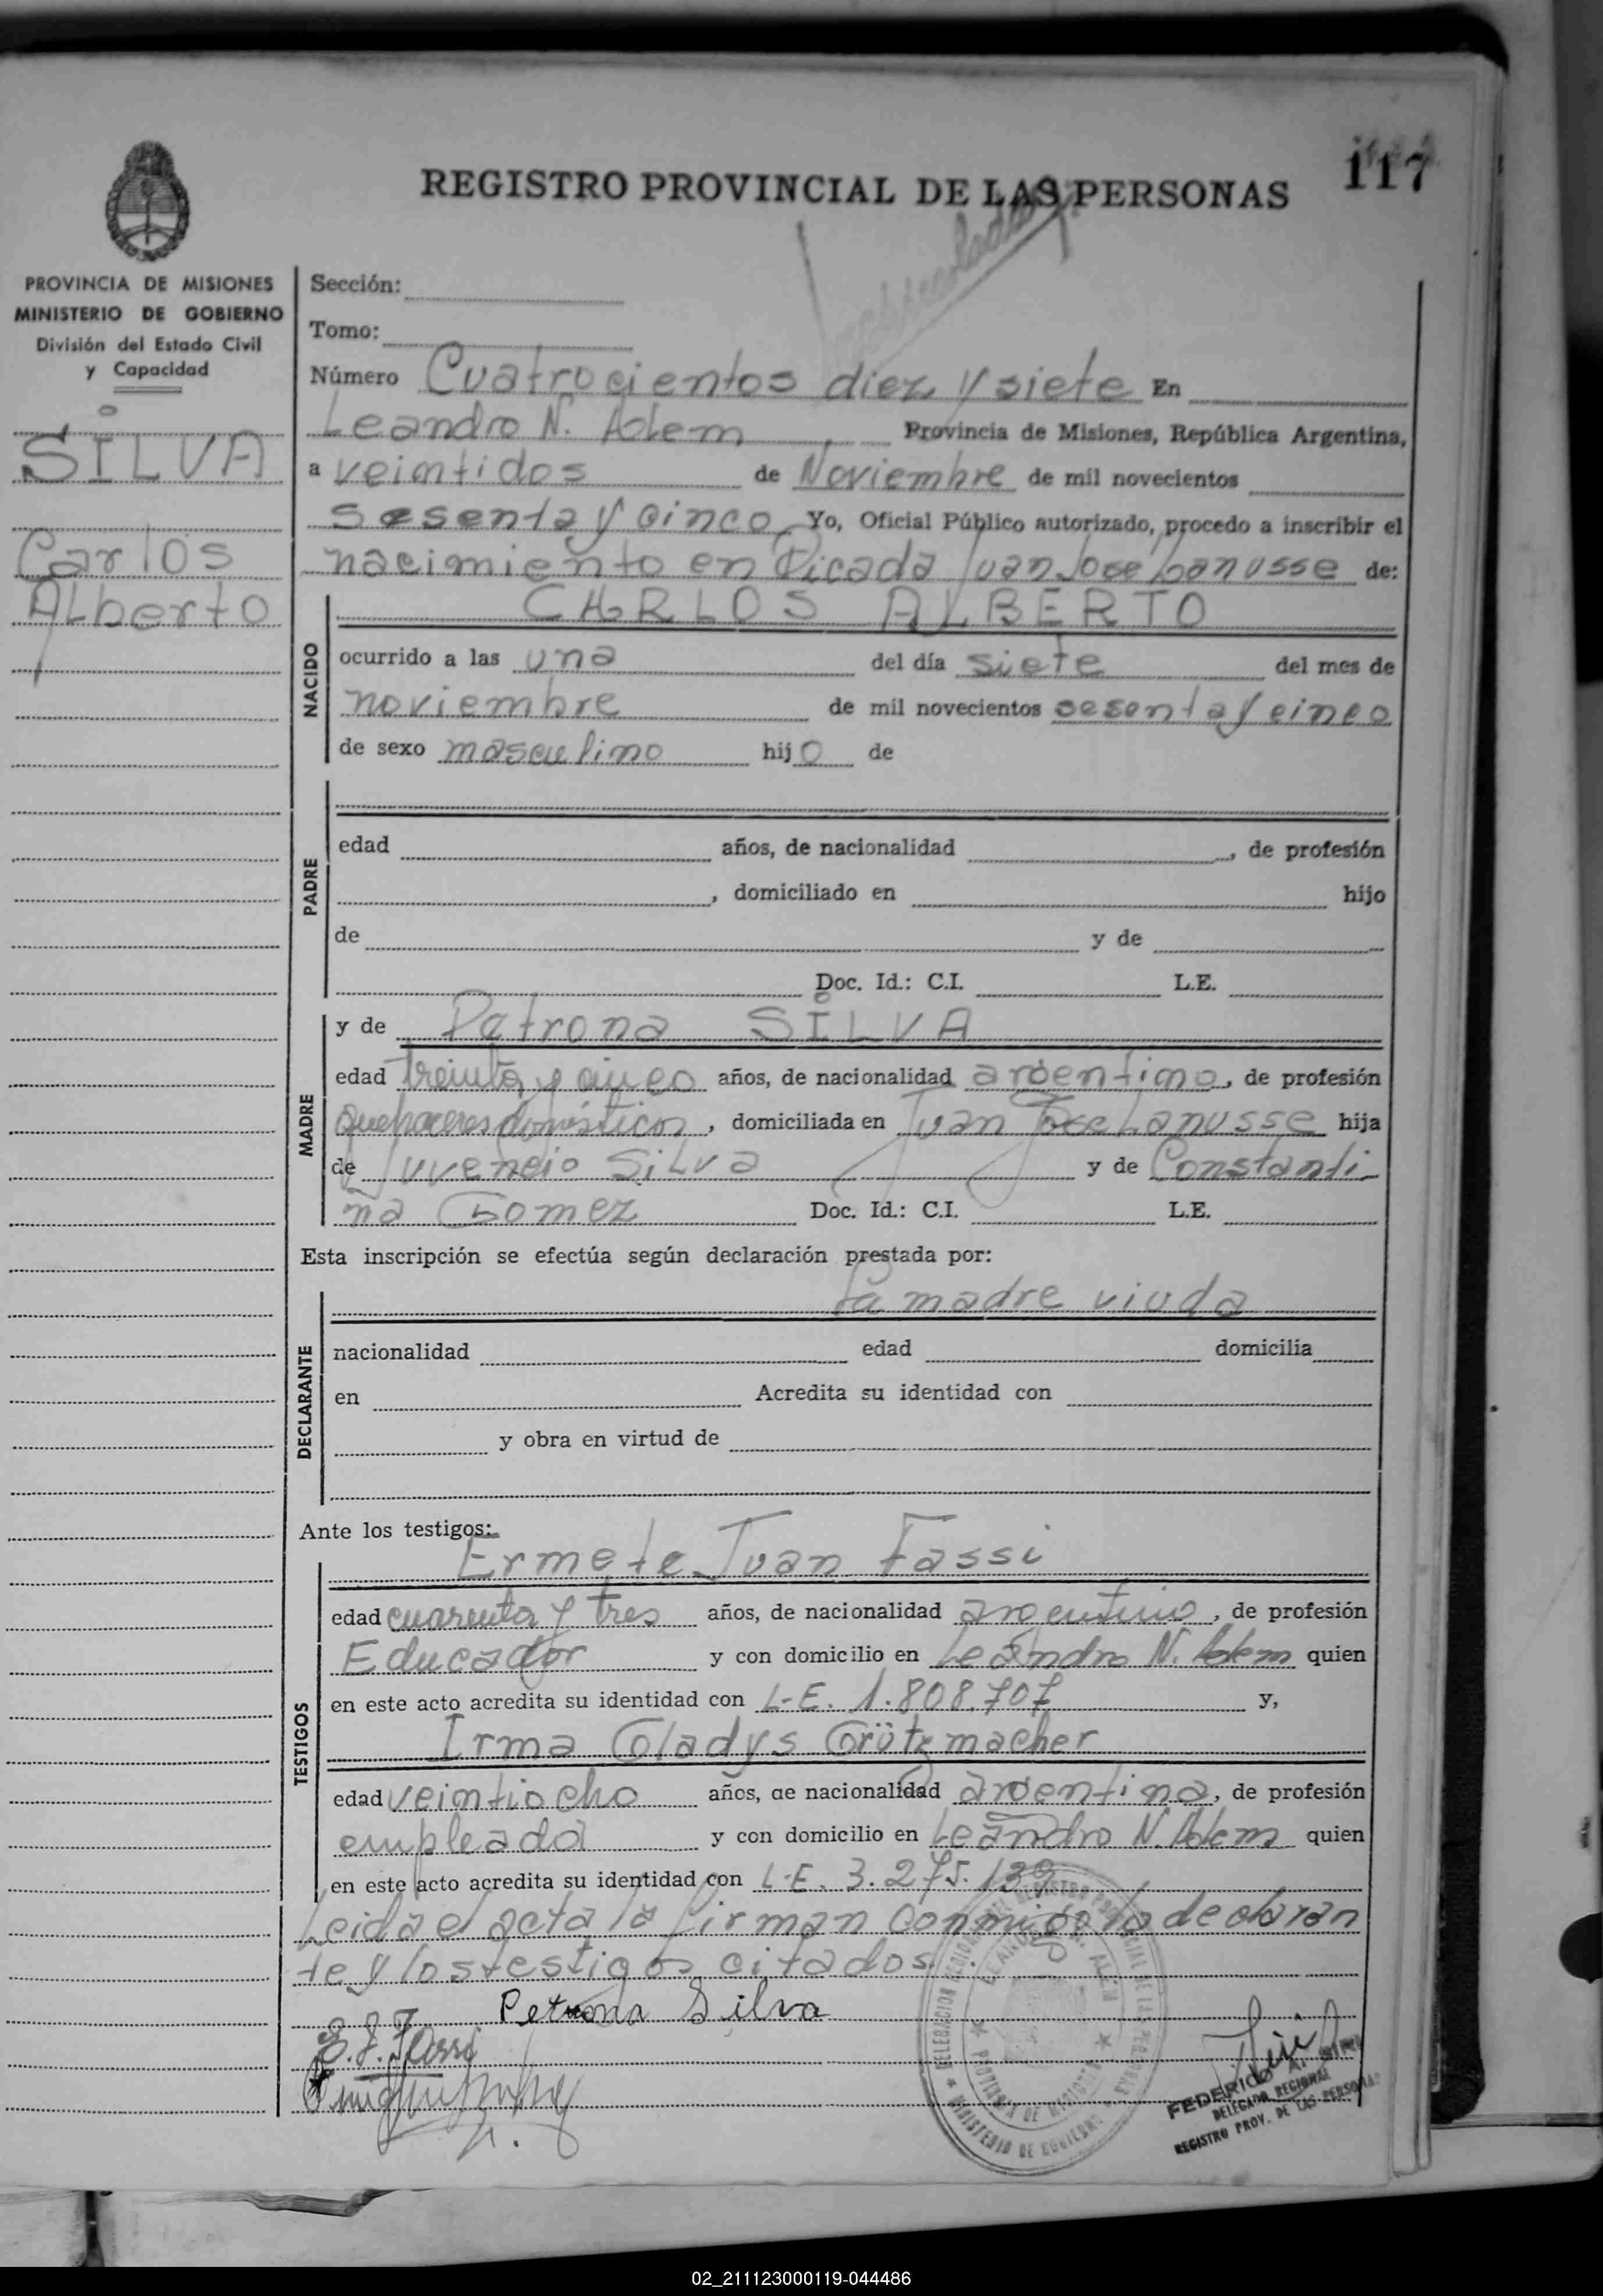 117
REGISTRO PROVINCIAL DE LAS PERSONAS
PROVINCIA DE MISIONES
MINISTERIO DE GOBIERNO
División del Estado Civil
y Capacidad
SILVA
Carlos
Alberto
Sección:
Tomo:
Número Cuatrocientos diez y siete En
Leandro N. Alem Provincia de Misiones, República Argentina,
a veintidos de Noviembre de mil novecientos
sesenta y cinco Yo, Oficial Público autorizado, procedo a inscribir el
nacimiento en Picada Juan Jose Lanusse de:
NACIDO
CARLOS ALBERTO
ocurrido a las una del día siete del mes de
noviembre de mil novecientos sesenta y cinco
de sexo masculino hijo de
PADRE
edad años, de nacionalidad , de profesión
, domiciliado en hijo
de y de
Doc. Id.: C.I. L.E.
MADRE
y de Petrona SILVA
edad treinta y cinco años, de nacionalidad argentina, de profesión
quehaceres domésticos, domiciliada en Juan Jose Lanusse hija
de Juvencio Silva y de Constanti
na Gomez Doc. Id.: C.I. L.E.
Esta inscripción se efectúa según declaración prestada por:
DECLARANTE
La madre viuda
nacionalidad edad domicilia
en Acredita su identidad con
y obra en virtud de
Ante los testigos:
TESTIGOS
Ermete Juan Fassi
edad cuarenta y tres años, de nacionalidad argentino, de profesión
Educador y con domicilio en Leandro N. Alem quien
en este acto acredita su identidad con L.E. 1.808.707 y,
Irma Gladys Grützmacher
edad veintiocho años, de nacionalidad argentina, de profesión
empleada y con domicilio en Leandro N. Alem quien
en este acto acredita su identidad con L.E. 3.275.139
Leida el acta la firman conmigo la declaran
te y los testigos citados.
Petrona Silva
E. J. Fassi
DELEGACION REGIONAL REGISTRO PROVINCIAL DE LAS PERSONAS
LEANDRO N. ALEM
PROVINCIA DE MISIONES
MINISTERIO DE GOBIERNO
FEDERICO A.
DELEGADO REGIONAL
REGISTRO PROV. DE LAS PERSONAS
02_211123000119-044486